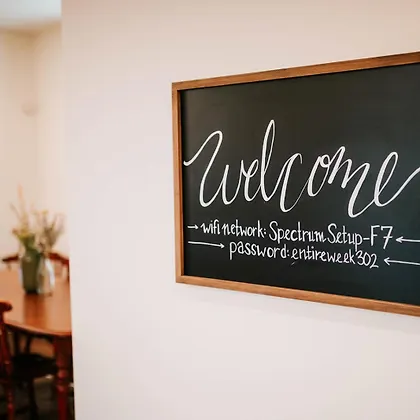 Welcome
wifi network: Spectrum Setup-F7
password: entireweek302